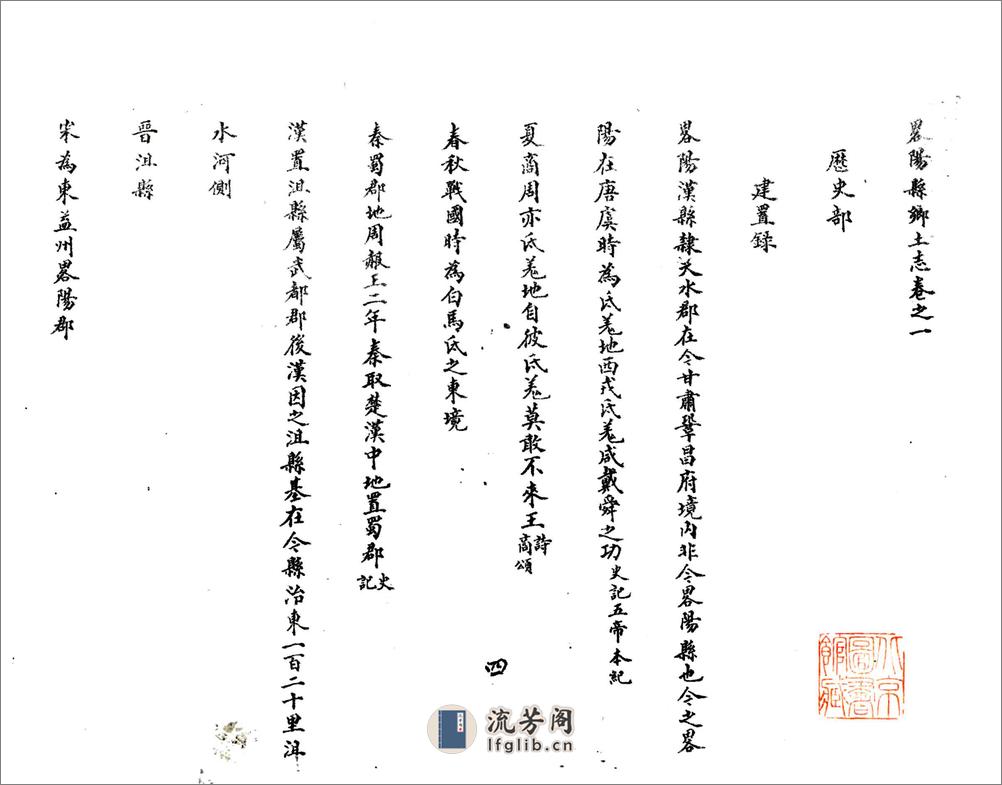 畧陽縣鄉土志卷之一
歷史部
建置錄
畧陽漢縣隸天水郡在今甘肅鞏昌府境内非今畧陽縣也今之畧
陽在唐虞時為氐羌地西戎氐羌咸戴舜之功史記五帝本紀
夏商周亦氐羌地自彼氐羌莫敢不來王詩商頌
春秋戰國時為白馬氐之東境
秦蜀郡地周赧王二年秦取楚漢中地置蜀郡史記
漢置沮縣屬武都郡後漢因之沮縣基在今縣治東一百二十里沮
水河側
晉沮縣
宋為東益州畧陽郡
四
北京圖書館藏
流芳阁
lfglib.cn